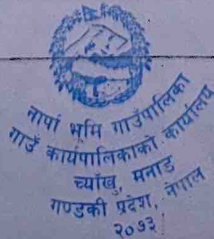 नार्पा भूमि गाउँपालिका
गाउँ कार्यपालिकाको कार्यालय
च्याँखु, मनाङ
गण्डकी प्रदेश, नेपाल
२०७३